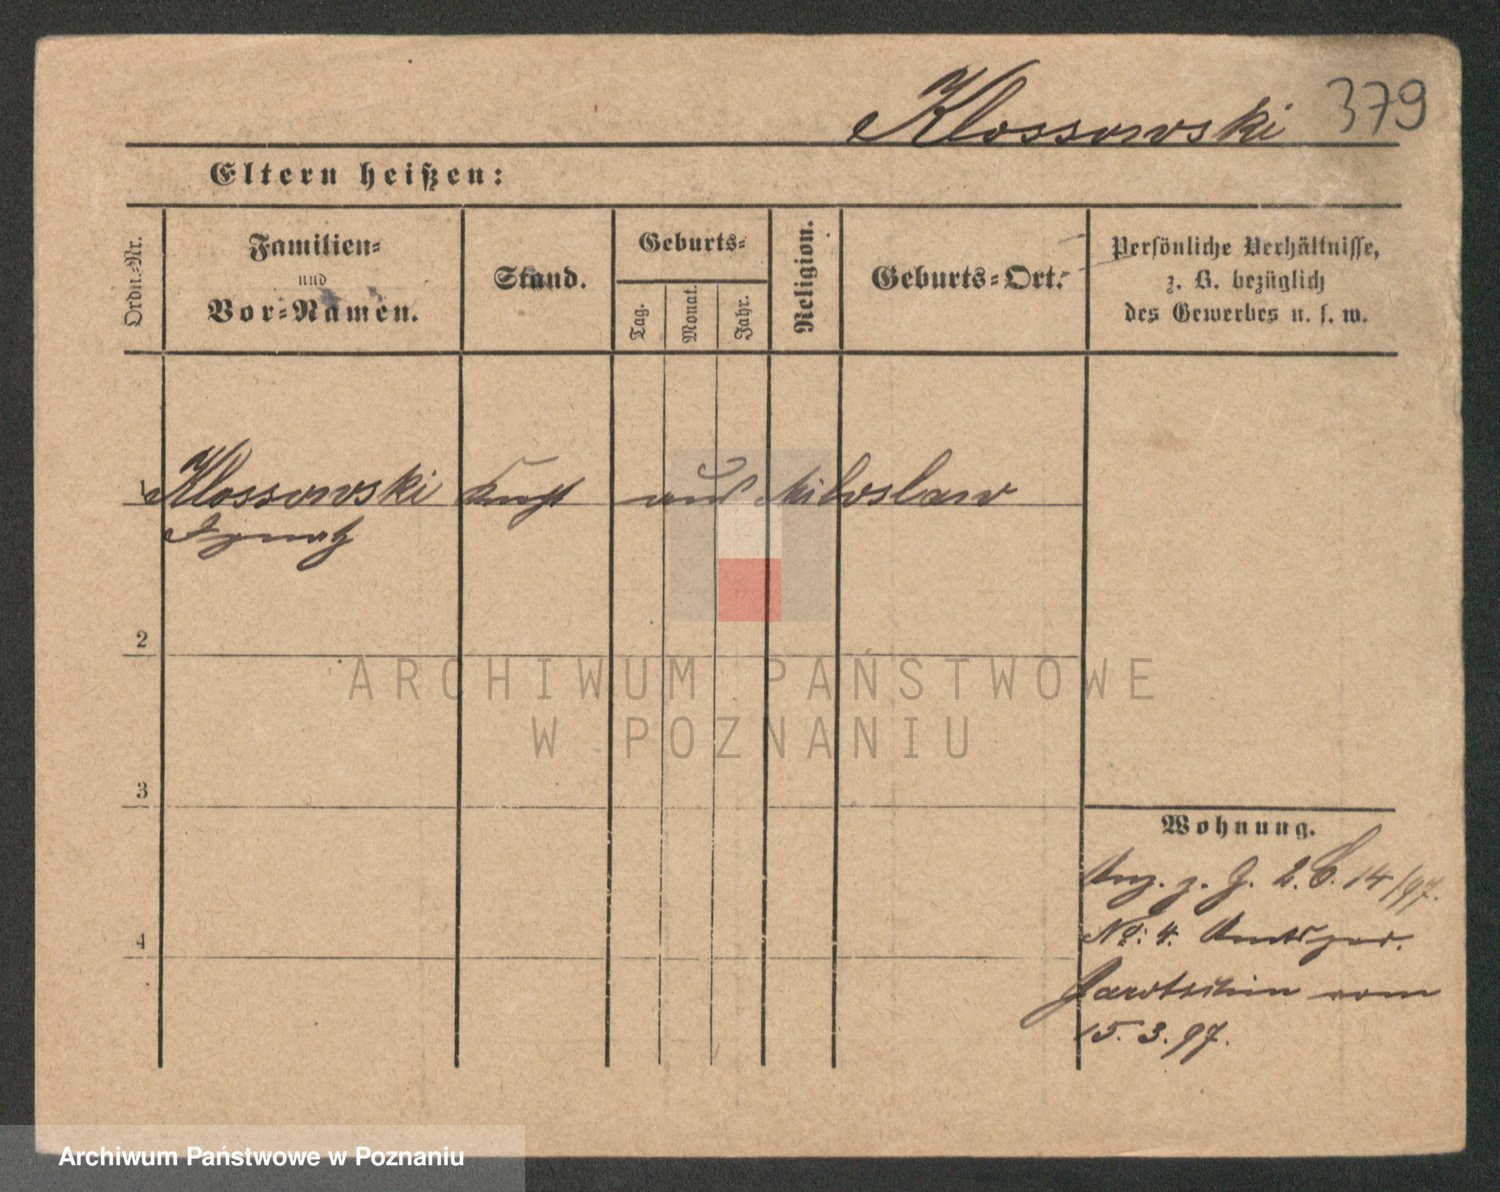 Klossowski 379
Eltern heißen:
Ordn.-Nr.
Familien-
und
Vor-Namen.
Stand.
Geburts-
Tag.
Monat.
Jahr.
Religion.
Geburts-Ort.
Persönliche Verhältnisse,
z. B. bezüglich
des Gewerbes u. s. w.
1 Klossowski aus Miloslaw
Ignatz
2
ARCHIWUM PAŃSTWOWE
W POZNANIU
3
Wohnung.
z. J. 2. C. 14/97.
4
No: 4. Amtsger.
Jarotschin vom
15. 3. 97.
Archiwum Państwowe w Poznaniu